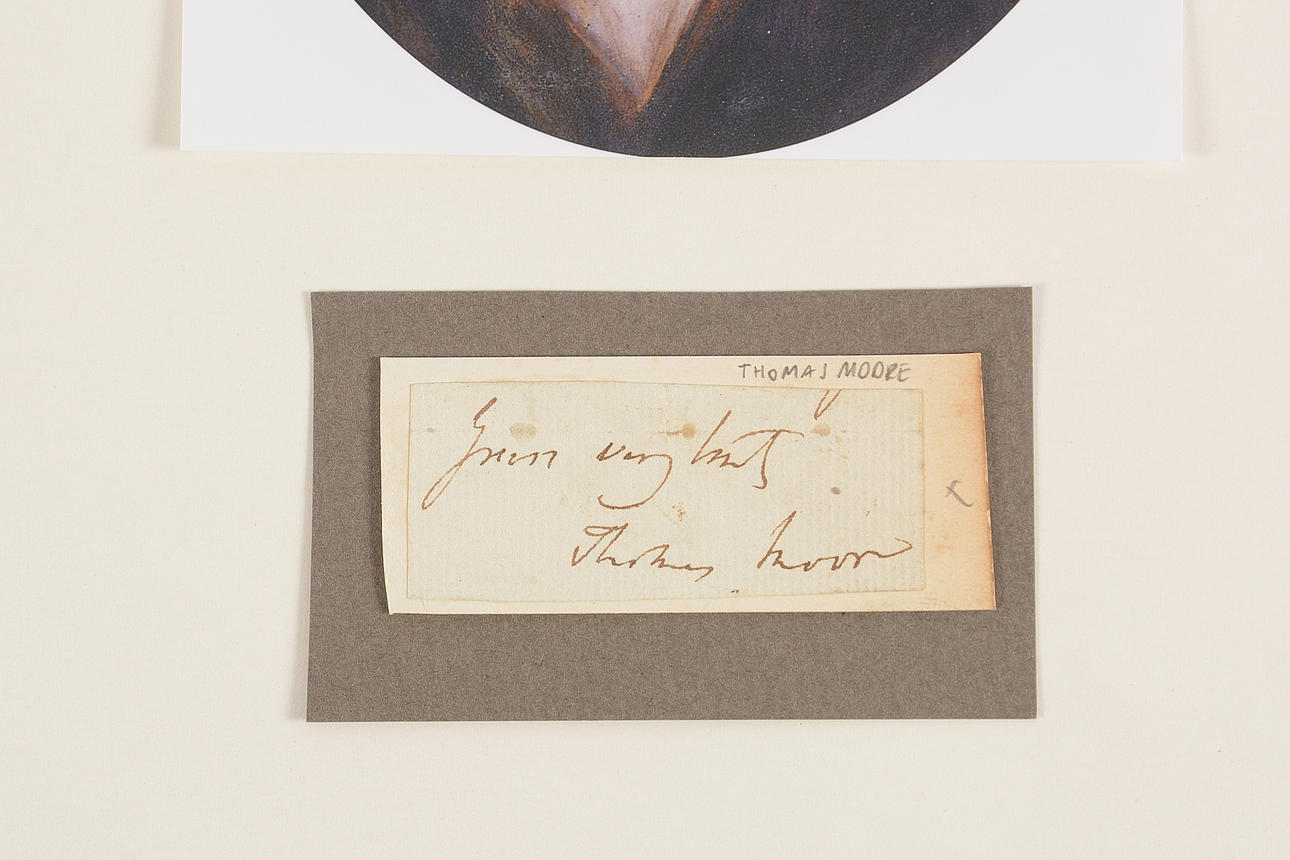 THOMAS MOORE
Yours very truly
Thomas Moore
x